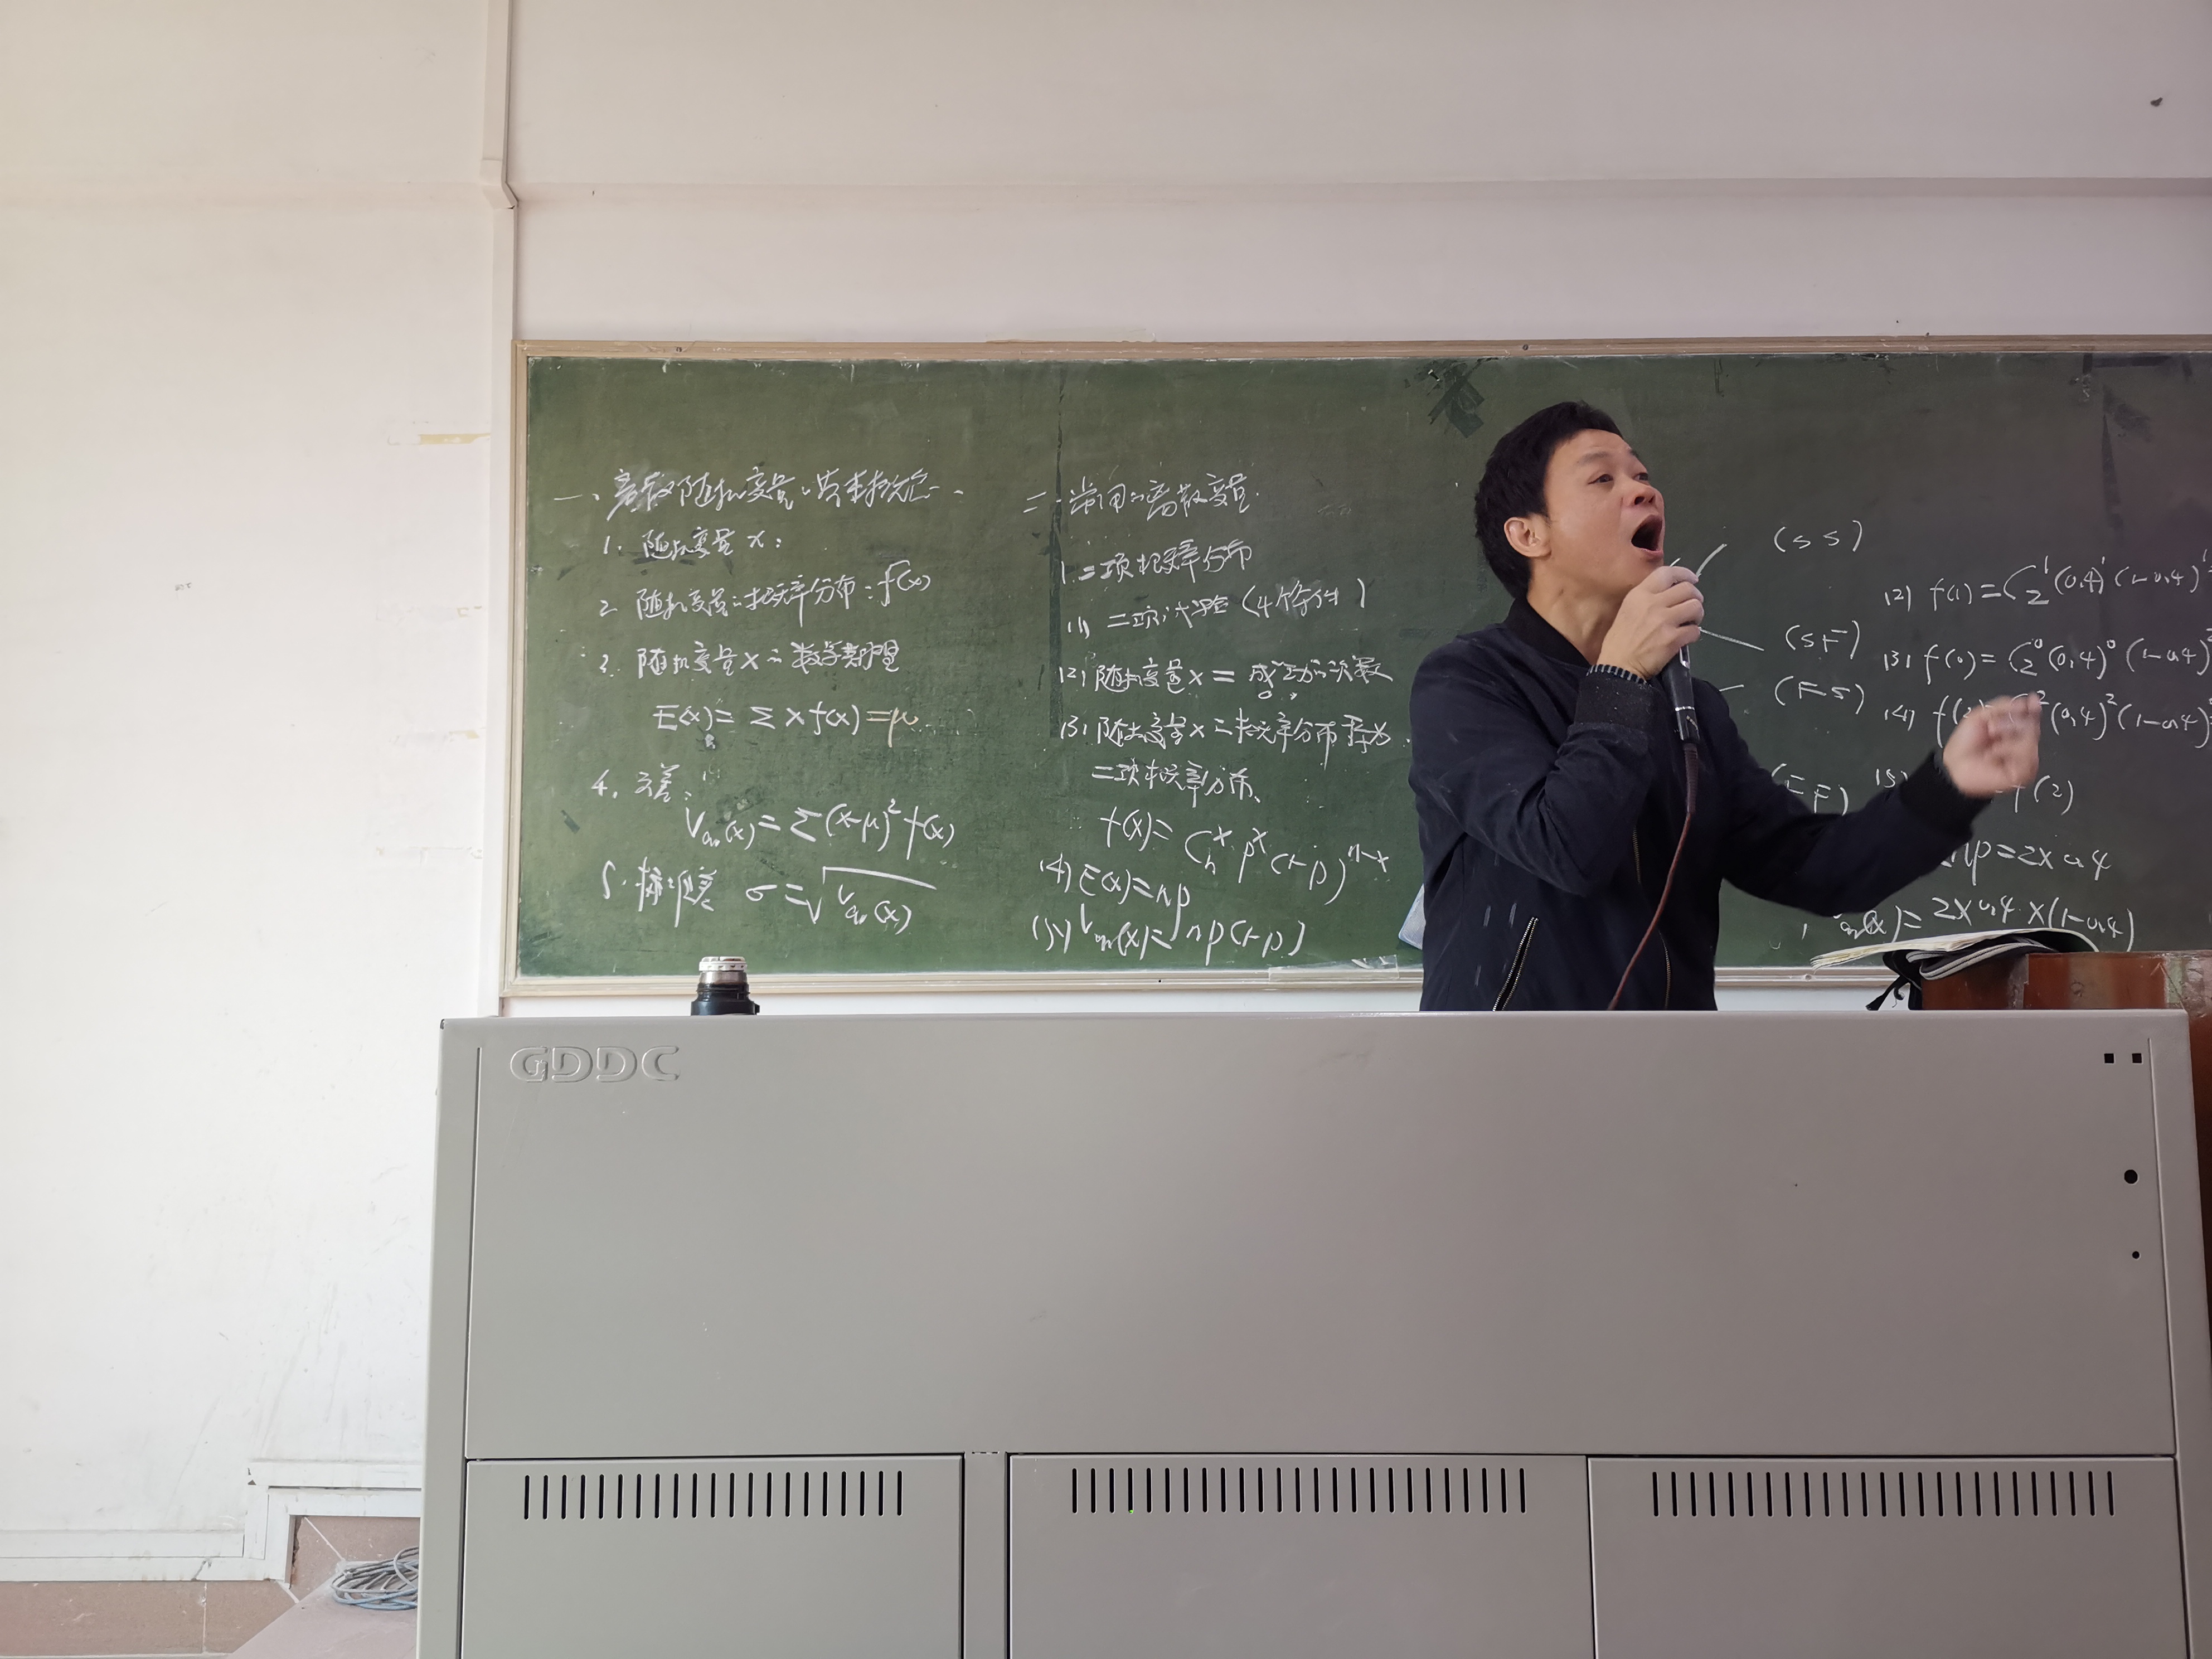 一、离散随机变量的基本概念.
1. 随机变量 x:
2. 随机变量的概率分布:f(x)
3. 随机变量 x 的数学期望
E(x)= Σ x f(x) =μ
4. 方差:
Var(x)= Σ(x-μ)² f(x)
5. 标准差 σ=√Var(x)
二. 常用的离散变量.
1. 二项概率分布
(1) 二项试验 (4个条件)
(2) 随机变量 x = 成功的次数
(3) 随机变量 x 的概率分布称为
二项概率分布、
f(x)= Cₙˣ pˣ (1-p)ⁿ⁻ˣ
(4) E(x)=np
(5) Var(x)= np(1-p)
(S S)
(S F)
(F S)
F)
(2) f(1) = C₂¹ (0.4)¹ (1-0.4)¹
(3) f(0) = C₂⁰ (0.4)⁰ (1-0.4)
(4) f( ² (0.4)² (1-0.4)
(5) f(2)
np=2×0.4
ar(x)= 2×0.4×(1-0.4)
GDDC